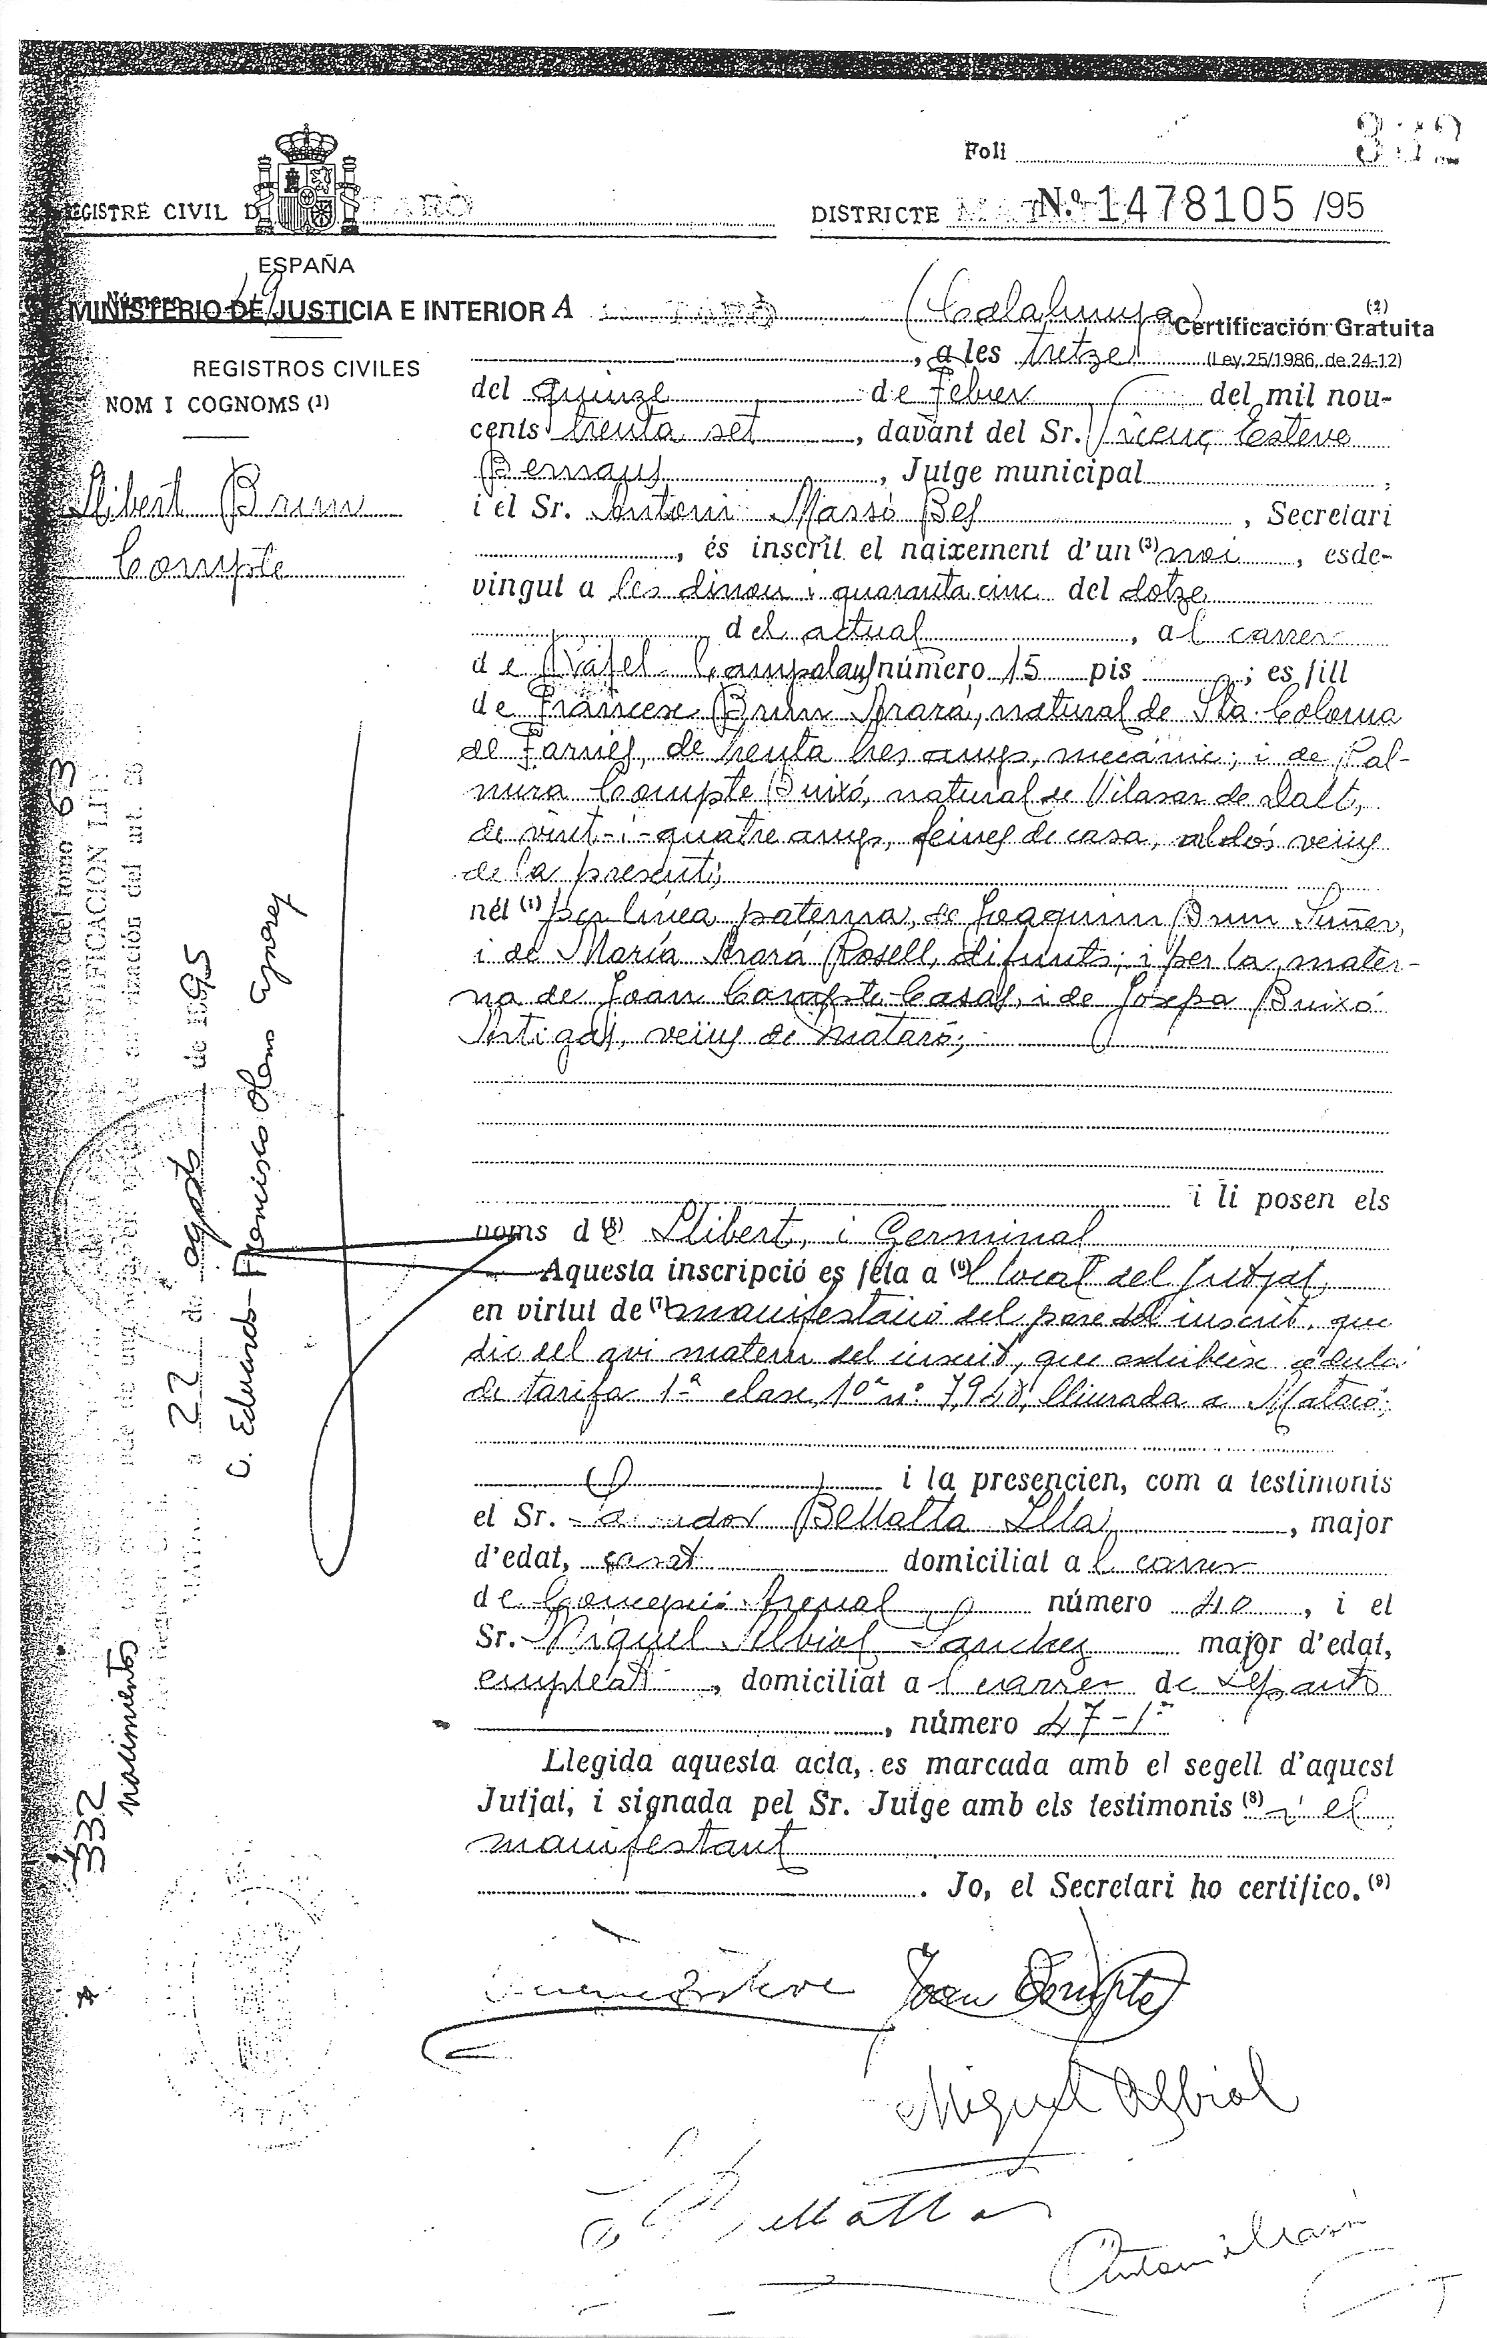 Foli 332
REGISTRE CIVIL D TARÓ
DISTRICTE MAT N.º 1478105 /95
ESPAÑA
Número 19
MINISTERIO DE JUSTICIA E INTERIOR
A (Catalunya) (2)
Certificación Gratuita
(Ley 25/1986, de 24-12)
REGISTROS CIVILES
NOM I COGNOMS (1)
Llibert Brun
Compte
, a les tretze
del quinze de Febrer del mil nou-
cents trenta set, davant del Sr. Vicenç Esteve
Bernaus, Jutge municipal ,
i el Sr. Antoni Massó Bes, Secretari
, és inscrit el naixement d'un (3) noi, esde-
vingut a les dinou i quaranta cinc del dotze
del actual, al carrer
de Rafel Campalans número 15 pis ; es fill
de Francesc Brun Arará, natural de Sta. Coloma
de Farnés, de trenta tres anys, mecánic; i de Pal-
mira Compte Buixó, natural de Vilasar de Dalt,
de vint-i-quatre anys, feines de casa, aldós veins
de la present;
nét (4) per línea paterna, de Joaquim Brun Suñer,
i de María Arará Rosell, difunts; i per la mater-
na de Joan Compte Casas, i de Josepa Buixó
Artigas, veïns de Mataró;
i li posen els
noms de (5) Llibert, i Germinal
Aquesta inscripció es feta a (6) l local del Jutjat,
en virtut de (7) manifestació del pare del inscrit, que
dic del avi matern del inscrit, que exhibeix cèdula
de tarifa 1ª clase 10ª nº 7,948, lliurada a Mataró;
i la presencien, com a testimonis
el Sr. Bellalta Illa, major
d'edat, casat domiciliat a l carrer
de Concepció Arenal número 40, i el
Sr. Miquel Albiol Sanchez major d'edat,
empleat, domiciliat a l carrer de Lepanto
, número 47-1º
Llegida aquesta acta, es marcada amb el segell d'aquest
Jutjat, i signada pel Sr. Jutge amb els testimonis (8) i el
manifestant
. Jo, el Secretari ho certifico. (9)
Joan Compte
Miguel Albiol
Bellalta
Antoni Massó
63
CERTIFICACION LIT
22 de agosto de 1995
C. Eduardo-Francisco
332
nacimientos